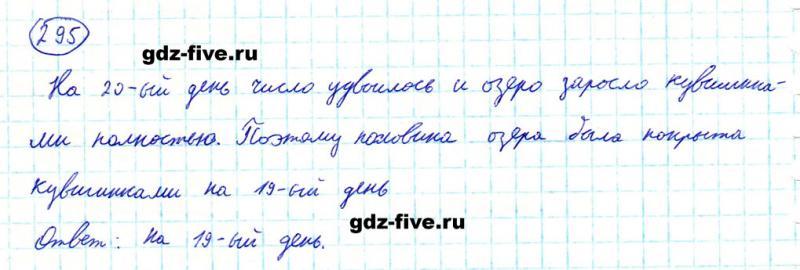 295
gdz-five.ru
На 20-ый день число удвоилось и озеро заросло кувшинка-
ми полностью. Поэтому половина озера была покрыта
кувшинками на 19-ый день
gdz-five.ru
Ответ: на 19-ый день.